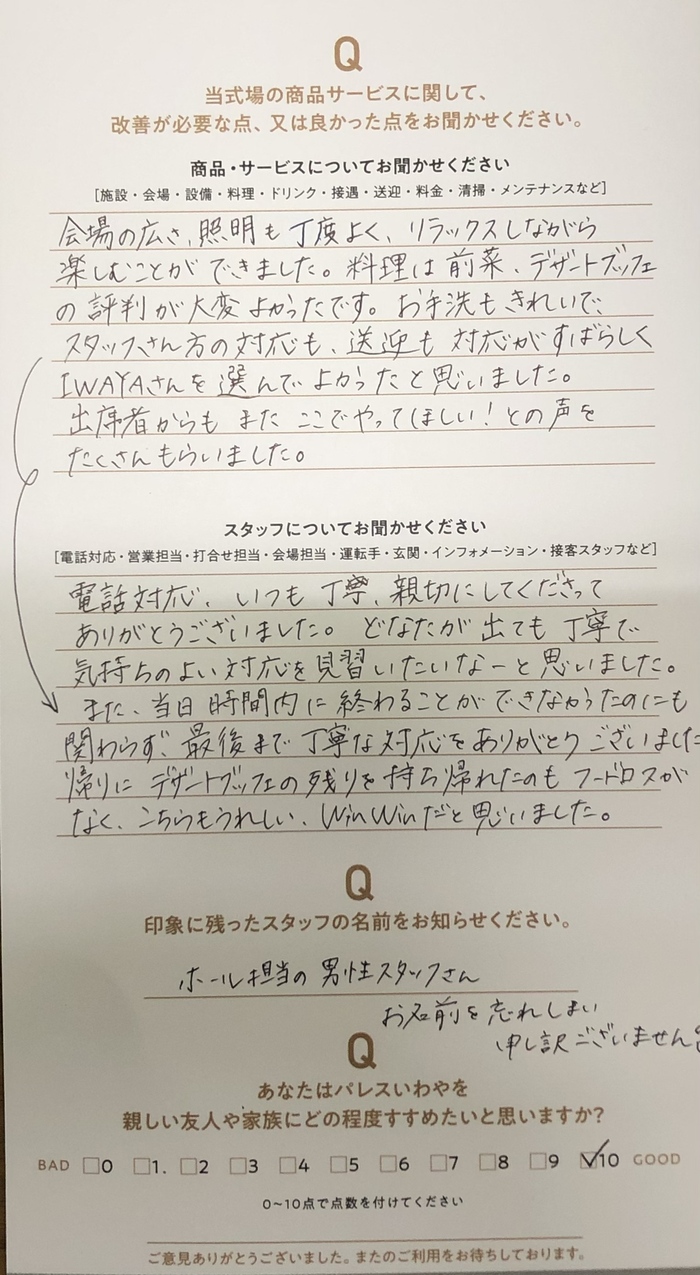 Q
当式場の商品サービスに関して、
改善が必要な点、又は良かった点をお聞かせください。
商品・サービスについてお聞かせください
[施設・会場・設備・料理・ドリンク・接遇・送迎・料金・清掃・メンテナンスなど]
会場の広さ、照明も丁度よく、リラックスしながら
楽しむことができました。料理は前菜、デザートブッフェ
の評判が大変よかったです。お手洗もきれいで、
スタッフさん方の対応も、送迎も対応がすばらしく
IWAYAさんを選んでよかったと思いました。
出席者からもまたここでやってほしい！との声を
たくさんもらいました。
スタッフについてお聞かせください
[電話対応・営業担当・打合せ担当・会場担当・運転手・玄関・インフォメーション・接客スタッフなど]
電話対応、いつも丁寧、親切にしてくださって
ありがとうございました。どなたが出ても丁寧で
気持ちのよい対応を見習いたいなーと思いました。
また、当日時間内に終わることができなかったのにも
関わらず、最後まで丁寧な対応をありがとうございました
帰りにデザートブッフェの残りを持ち帰れたのもフードロスが
なく、こちらもうれしい、WinWinだと思いました。
Q
印象に残ったスタッフの名前をお知らせください。
ホール担当の男性スタッフさん
お名前を忘れしまい
申し訳ございません
Q
あなたはパレスいわやを
親しい友人や家族にどの程度すすめたいと思いますか?
BAD □0 □1. □2 □3 □4 □5 □6 □7 □8 □9 ☑10 GOOD
0~10点で点数を付けてください
ご意見ありがとうございました。またのご利用をお待ちしております。